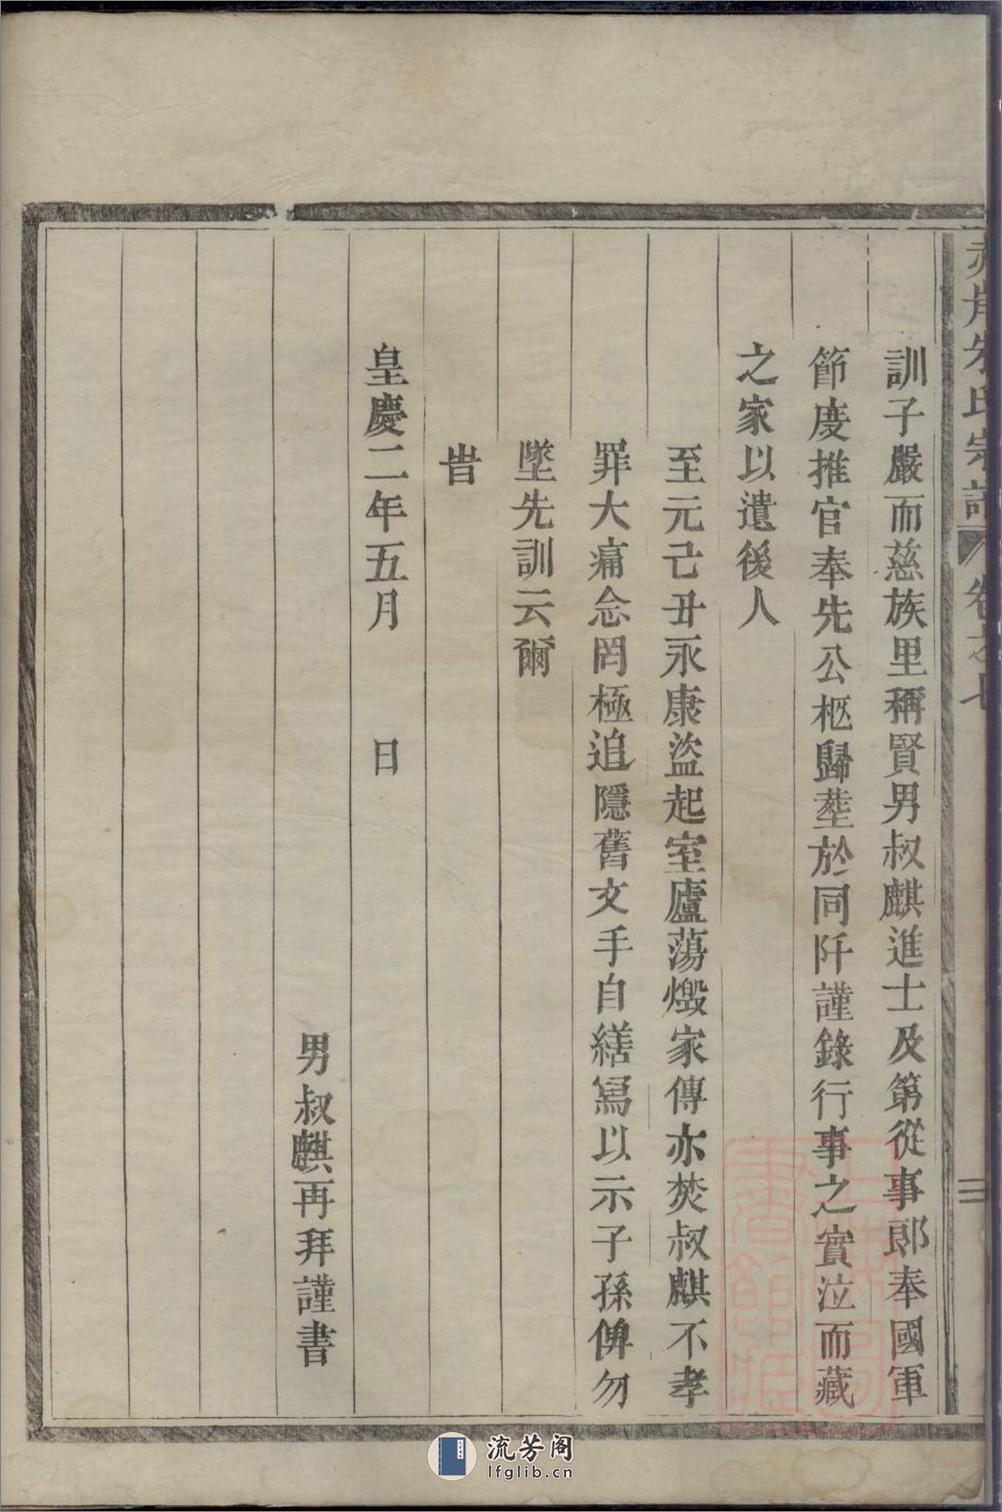 訓子嚴而慈族里稱賢男叔麒進士及第從事郎奉國軍
節度推官奉先公柩歸塟於同阡謹錄行事之實泣而藏
之家以遺後人
至元己丑永康盜起室廬蕩燬家傳亦焚叔麒不孝
罪大痛念罔極追隱舊文手自繕寫以示子孫俾勿
墜先訓云爾
旹
皇慶二年五月 日
男叔麒再拜謹書
赤岸朱氏宗譜 卷之七 二
流芳阁
lfglib.cn